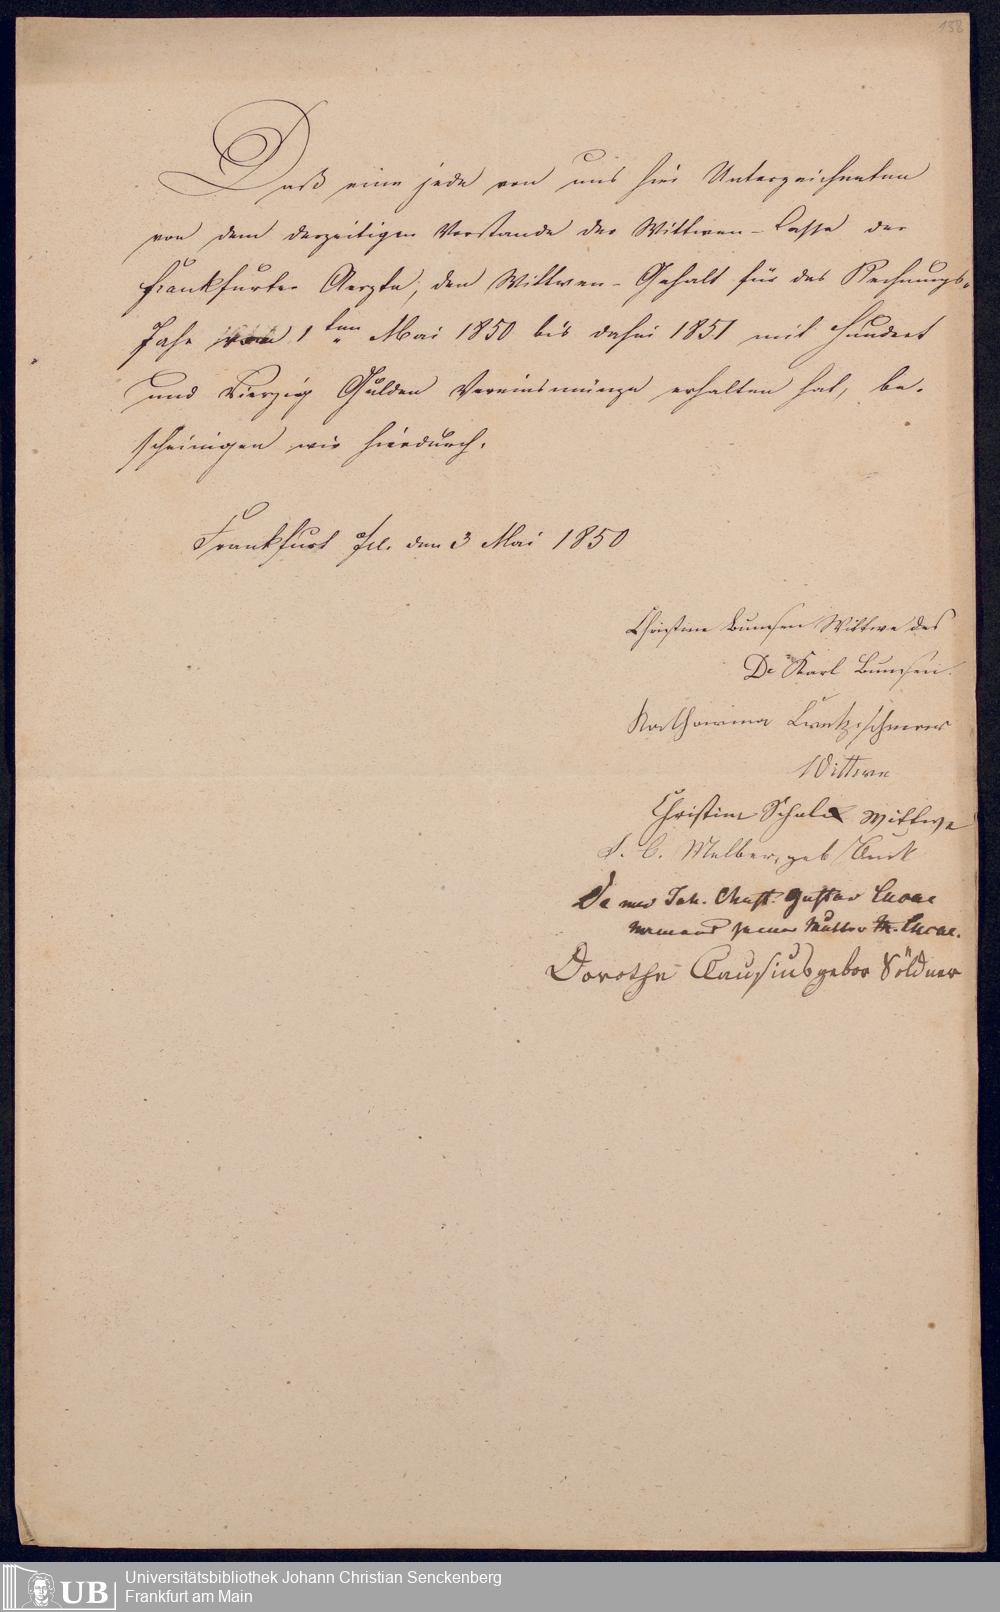 138
Daß eine jede von uns hier Unterzeichneten
von dem derzeitigen Vorstande der Wittwen-Casse der
Frankfurter Aerzte, den Wittwen-Gehalt für das Rechnungs-
Jahr vom 1ten Mai 1850 bis dahin 1851 mit Hundert
und Vierzig Gulden Vereinsmünze erhalten hat, be-
scheinigen wir hierdurch.
Frankfurt den 3 Mai 1850
Christine Bunsen Wittwe des
Dr Karl Bunsen.
Katharina Kretzschmar
Wittwe
Christine Schalk Wittwe
C. Melber, geb
Dr med Joh. Christ. Gustav Lucae
namens seiner Mutter M. Lucae.
Dorothe Causius gebor Söldner
UB
Universitätsbibliothek Johann Christian Senckenberg
Frankfurt am Main